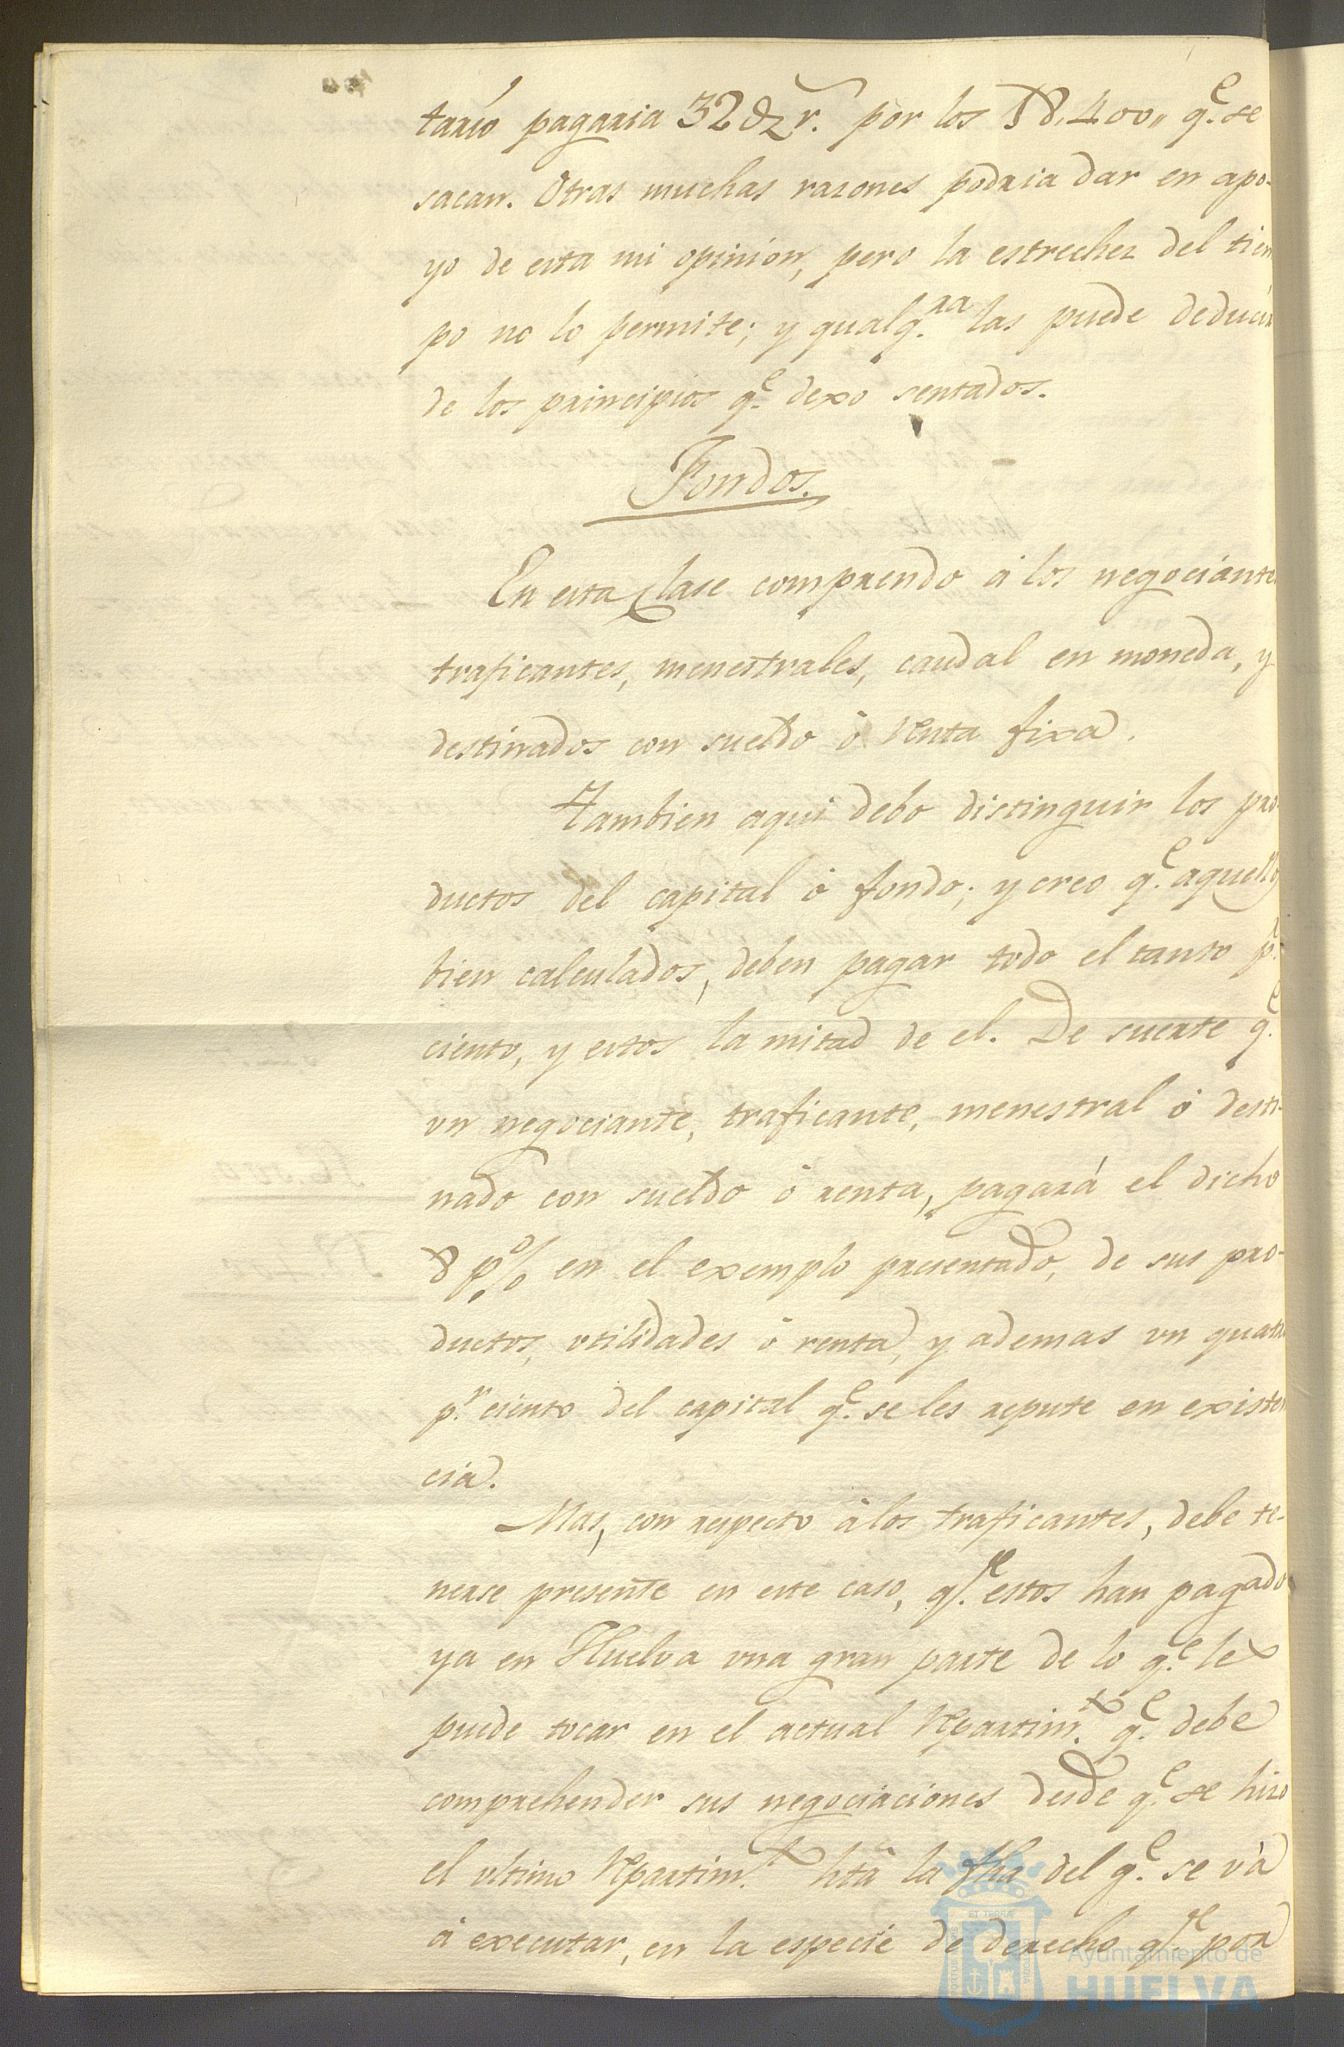 tario pagaria 32 r.^ por los 18.400,, q.e se
sacan. Otras muchas razones podria dar en apo-
yo de esta mi opinion, pero la estrechez del tiem
po no lo permite; y qualq.ra las puede deducir
de los principios q.e dexo sentados.
Fondos.
En esta Clase comprendo á los negociantes
traficantes, menestrales, caudal en moneda, y
destinados con sueldo ò renta fixa.
Tambien aqui debo distinguir los pro
ductos del capital ò fondo; y creo q.e aquellos
bien calculados, deben pagar todo el tanto p.r
ciento, y estos la mitad de el. De suerte q.e
un negociante, traficante, menestral ó desti-
nado con sueldo ò renta, pagará el dicho
8 p% en el exemplo presentado, de sus pro-
ductos, utilidades ò renta, y ademas un quatro
p.r ciento del capital q.e se les repute en existen
cia.
Mas, con respecto á los traficantes, debe te-
nerse presente en este caso, q.e estos han pagado
ya en Huelva una gran parte de lo q.e les
puede tocar en el actual Repartim.to q.e debe
comprehender sus negociaciones desde q.e se hizo
el ultimo Repartim.to htã la fha del q.e se và
á executar, en la especie de derecho q.e por
Ayuntamiento de
HUELVA